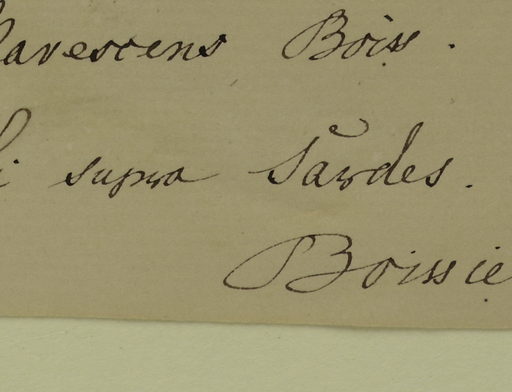 lavescens Boiss.
i supra Sardes.
Boissie